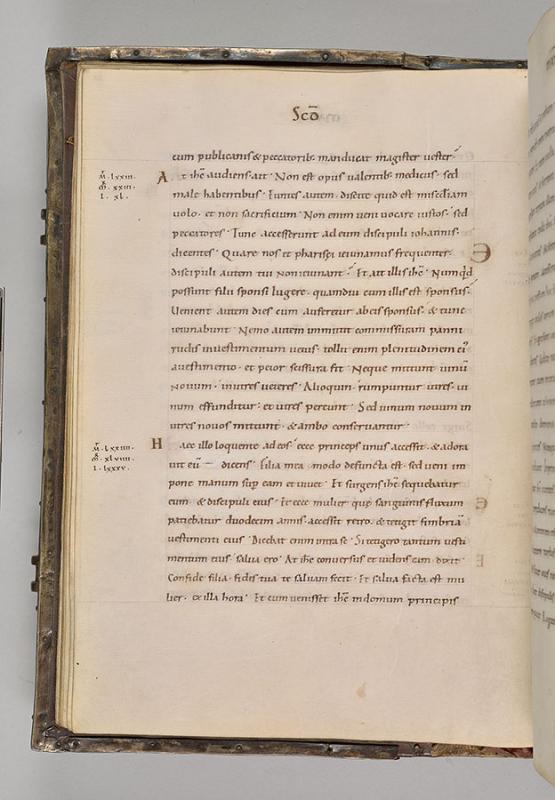 Scō
cum publicanis & peccatorib; manducat magister uester
m̄. lxxiii.
m̄. xxiii.
l. xl.
At ihē audiens ait · Non est opus ualentib; medicus · sed
male habentibus · Euntes autem discite quid est misedīam
uolo · et non sacrificium · Non enim ueni uocare iustos · sed
peccatores · Tunc accesserunt ad eum discipuli iohannis ·
dicentes · Quare nos et pharisei ieiunamus frequenter ·
discipuli autem tui non ieiunant · Et ait illis ihē · Numqd
possunt filii sponsi lugere · quamdiu cum illis est sponsus ·
Uenient autem dies cum auferetur ab eis sponsus · & tunc
ieiunabunt · Nemo autem inmittit commissuram panni
rudis inuestimentum uetus · tollit enim plenitudinem ei
auestimento · et peior scissura fit · Neque mittunt uinū
nouum · inutres ueteres · Alioquin · rumpuntur utres · ui
num effunditur · et utres pereunt · Sed uinum nouum in
utres nouos mittunt · & ambo conseruantur ·
m̄. lxxiiii.
m̄. xlviiii.
l. lxxxv.
Haec illo loquente ad eos · ecce princeps unus accessit · & adora
uit eū dicens · Filia mea · modo defuncta est · sed ueni im
pone manum sup eam et uiuet · Et surgens ihē sequebatur
eum · & discipuli eius · Et ecce mulier quę sanguinis fluxum
patiebatur duodecim annis · accessit retro · & tetigit fimbriā
uestimenti eius · Dicebat enim intra se · Si tetigero tantum uesti
mentum eius · salua ero · At ihē conuersus et uidens eam · dixit ·
Confide filia · fides tua te saluam fecit · Et salua facta est mu
lier · ex illa hora · Et cum uenisset ihē indomum principis